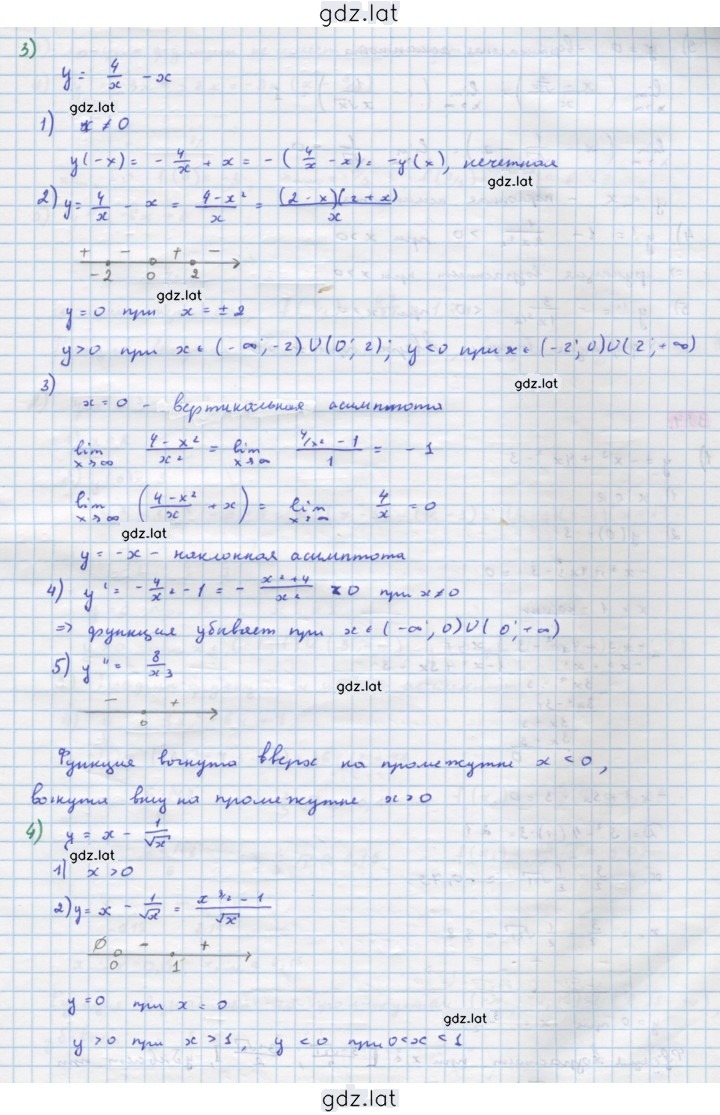 gdz.lat
3)
y = 4/x - x
gdz.lat
1) x ≠ 0
y(-x) = - 4/x + x = - (4/x - x) = -y(x), нечетная
gdz.lat
2) y = 4/x - x = (4-x²)/x = (2-x)(2+x)/x
+ - + -
-2 0 2
gdz.lat
y = 0 при x = ± 2
y>0 при x ∈ (-∞; -2) U (0; 2); y<0 при x ∈ (-2; 0) U (2; +∞)
gdz.lat
3)
x = 0 - вертикальная асимптота
lim x→∞ (4-x²)/x² = lim x→∞ (4/x² - 1)/1 = - 1
lim x→∞ ((4-x²)/x + x) = lim x→∞ 4/x = 0
gdz.lat
y = -x - наклонная асимптота
4) y' = - 4/x² - 1 = - (x²+4)/x² < 0 при x ≠ 0
=> функция убывает при x ∈ (-∞; 0) U (0; +∞)
5) y'' = 8/x³
gdz.lat
- +
0
Функция вогнута вверх на промежутке x < 0,
вогнута вниз на промежутке x > 0
4) y = x - 1/√x
gdz.lat
1) x > 0
2) y = x - 1/√x = (x^3/2 - 1)/√x
∅ - +
0 1
y = 0 при x = 0
gdz.lat
y > 0 при x > 1, y < 0 при 0 < x < 1
gdz.lat